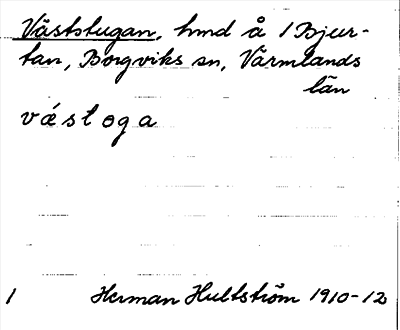 Väststugan, hmd å 1 Bjur-
tan, Borgviks sn, Värmlands
län
vǽstoga
1 Herman Hultström 1910-12